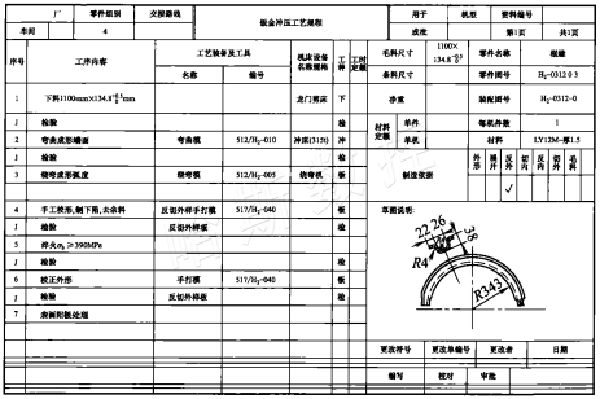 厂 零件组别 交接路线 钣金冲压工艺规程 用于 机型 资料编号
车间 4 成批 第1页 共1页
序号 工序内容 工艺装备及工具 机床设备名称规格 工种 工时定额 毛料尺寸 1100× 134.8 零件名称
名称 编号 备料尺寸 零件图号
1 下料1100mm×134.8 mm 龙门剪床 下 净重 装配图号 H₂-0312-0
J 检验 检 材料定额 单件 每机件数 1
2 弯曲成形端面 弯曲模 512/H₂-010 冲床(315t) 冲 单机 材料 LY12M-厚1.5
J 检验 检
3 绕弯成形弧度 绕弯模 512/H₂-005 绕弯机 钣 制造依据 外形 展开 反外 切内 反内 切外 毛料
√
4 手工整形,制下陷,去余料 反切外样手打模 517/H₂-040 钣 草图说明:
J 检验 反切外样板 检
5 淬火σb≥390MPa
J 检验 检
6 校正外形 手打模 517/H₂-040 钣
J 检验 反切外样板 检
7 表面阳极处理
22 26
38
R4
R343
更改符号 更改单编号 更改者 日期
编写 校对 审批